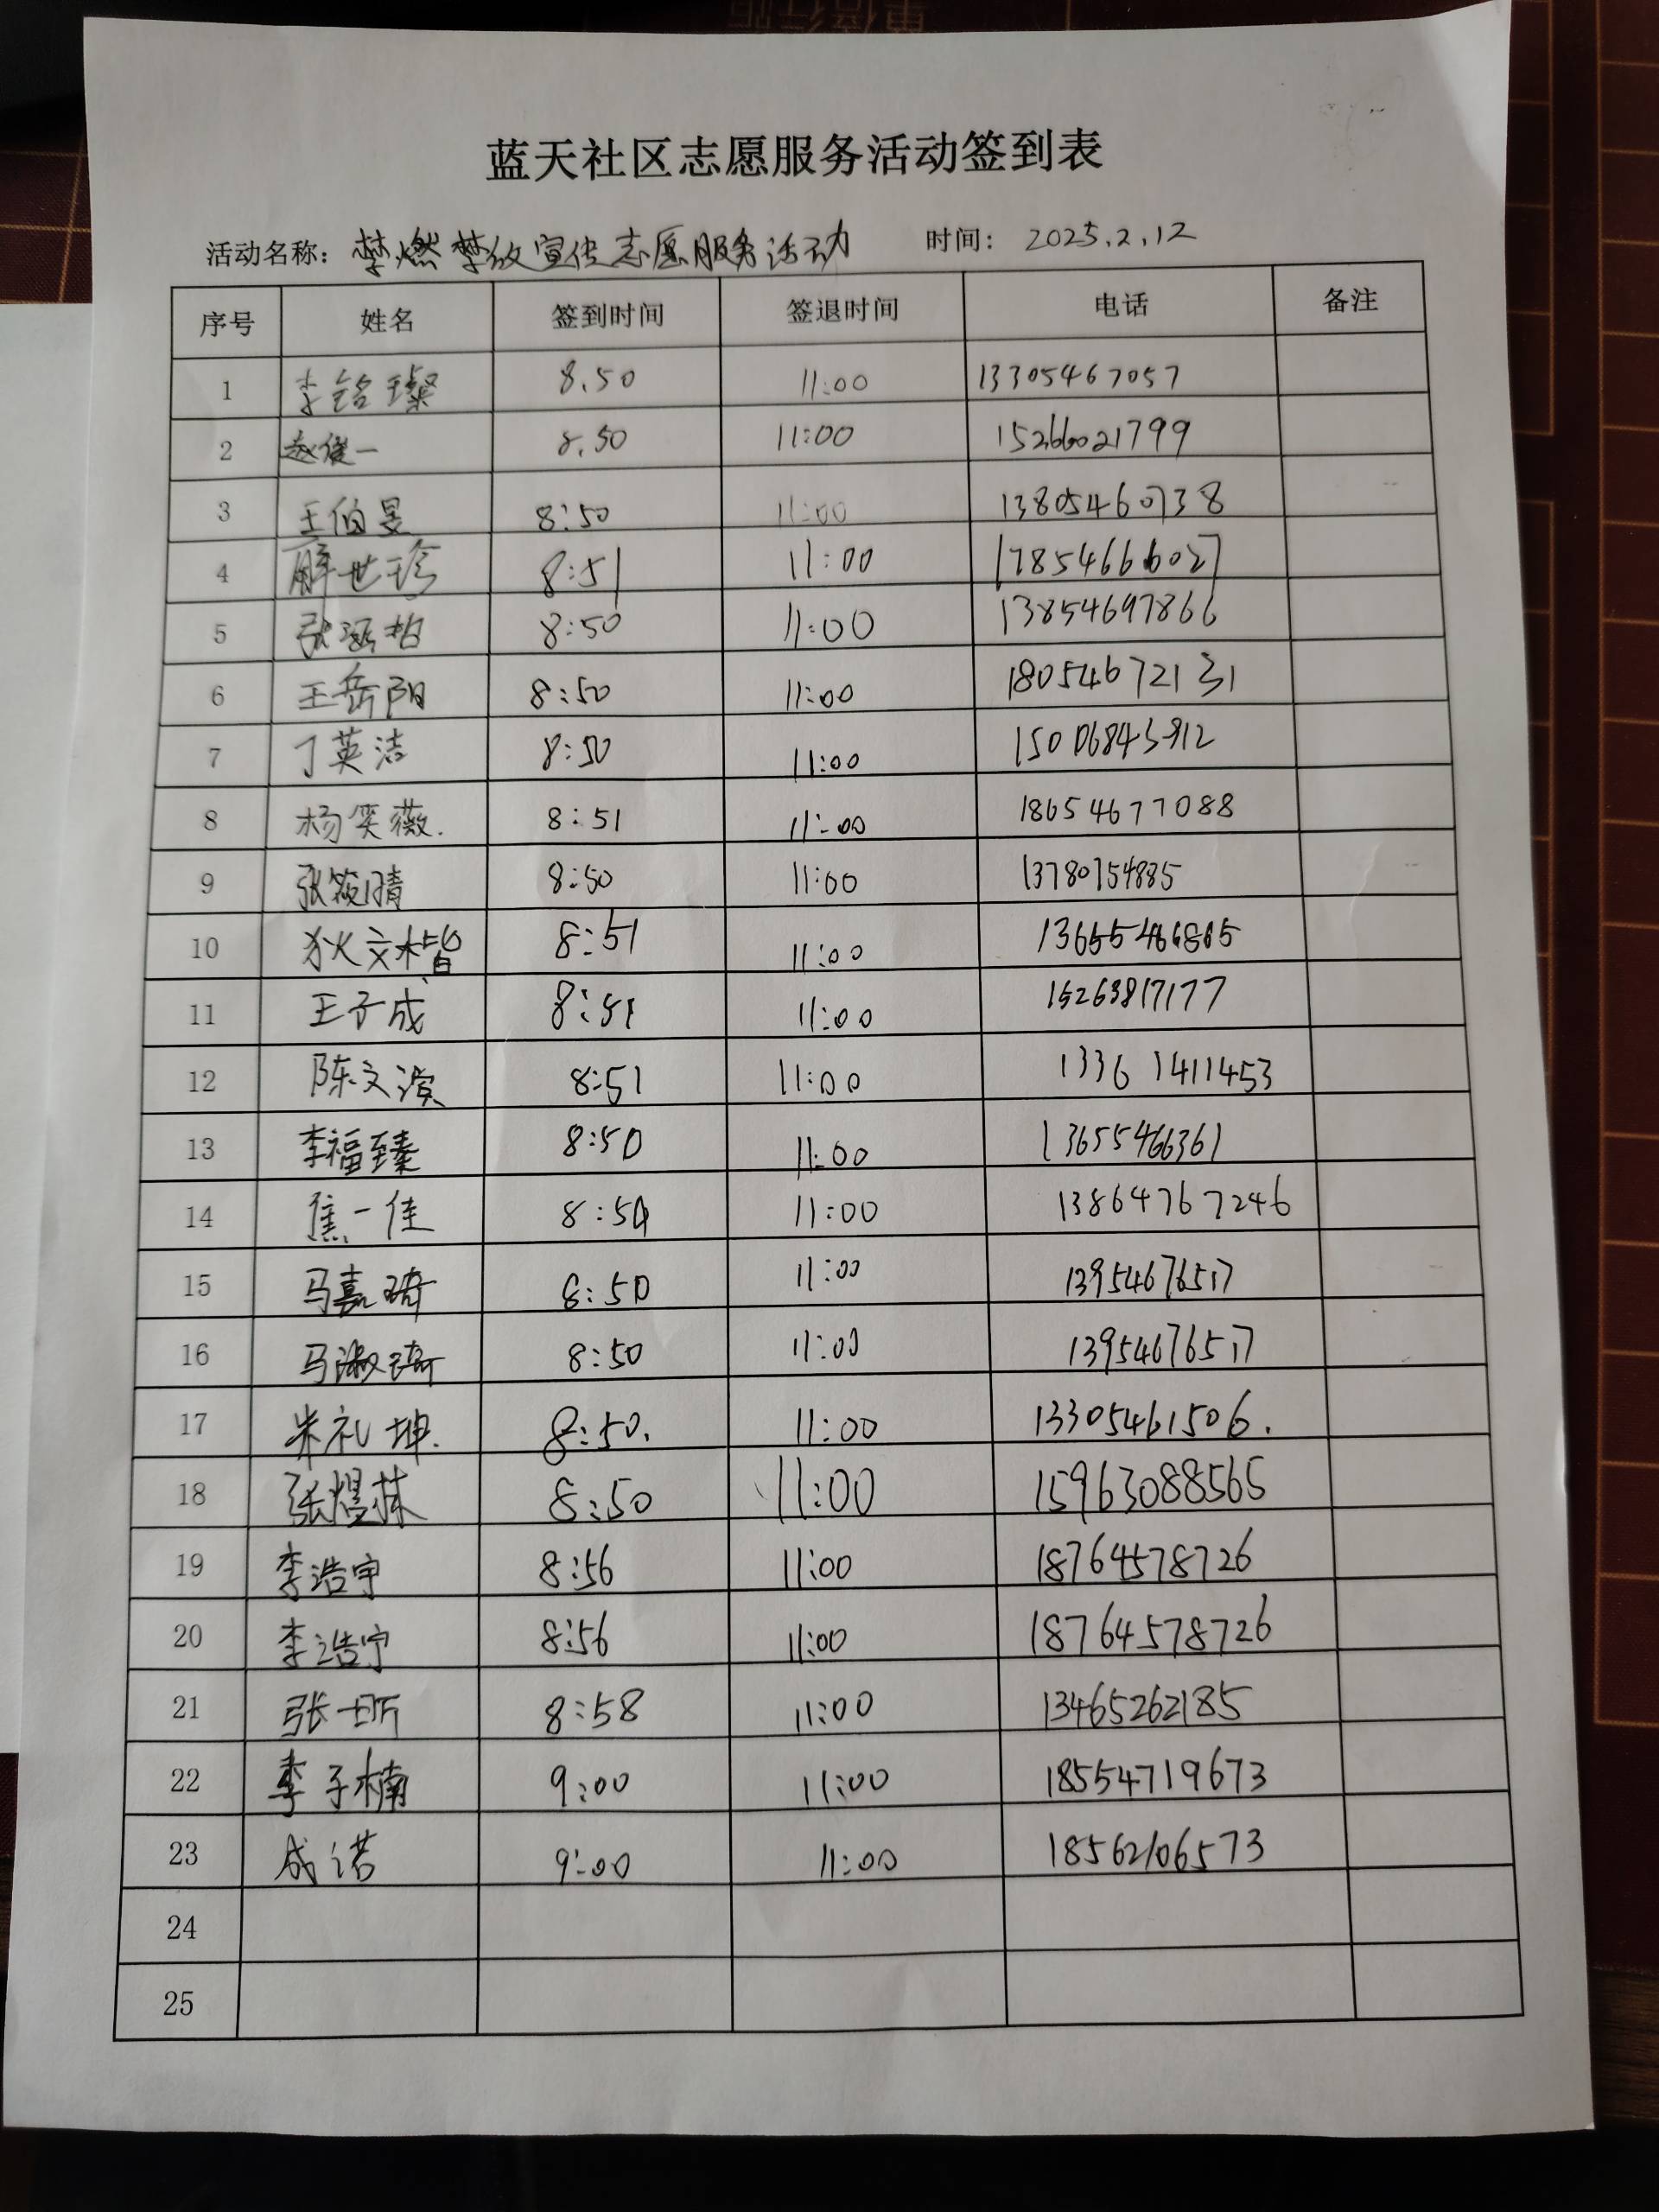 蓝天社区志愿服务活动签到表
活动名称: 禁燃禁放宣传志愿服务活动 时间: 2025.2.12
序号 姓名 签到时间 签退时间 电话 备注
1 李铭璨 8.50 11:00 13305467057
2 赵俊一 8.50 11:00 15266021799
3 王伯昱 8:50 11:00 13805460738
4 薛世珍 8:51 11:00 17854666027
5 张涵柏 8:50 11:00 13854697866
6 王岳阳 8:50 11:00 18054672131
7 丁英洁 8:50 11:00 15006843912
8 杨奕薇. 8:51 11:00 18654677088
9 张筱晴 8:50 11:00 13780754885
10 狄文楷 8:51 11:00
11 王子成 8:51 11:00 15263817177
12 陈文滨 8:51 11:00 13361411453
13 李福臻 8:50 11:00 13655466361
14 焦一佳 8:50 11:00 13864767246
15 马嘉琦 8:50 11:00 13954676517
16 马淑琦 8:50 11:00 13954676517
17 朱礼坤. 8:50. 11:00 13305461506.
18 张煜林 8:50 11:00 15963088565
19 李浩宇 8:56 11:00 18764578726
20 李浩宁 8:56 11:00 18764578726
21 张一昕 8:58 11:00 13465262185
22 李子楠 9:00 11:00 18554719673
23 成诺 9:00 11:00 18562106573
24
25